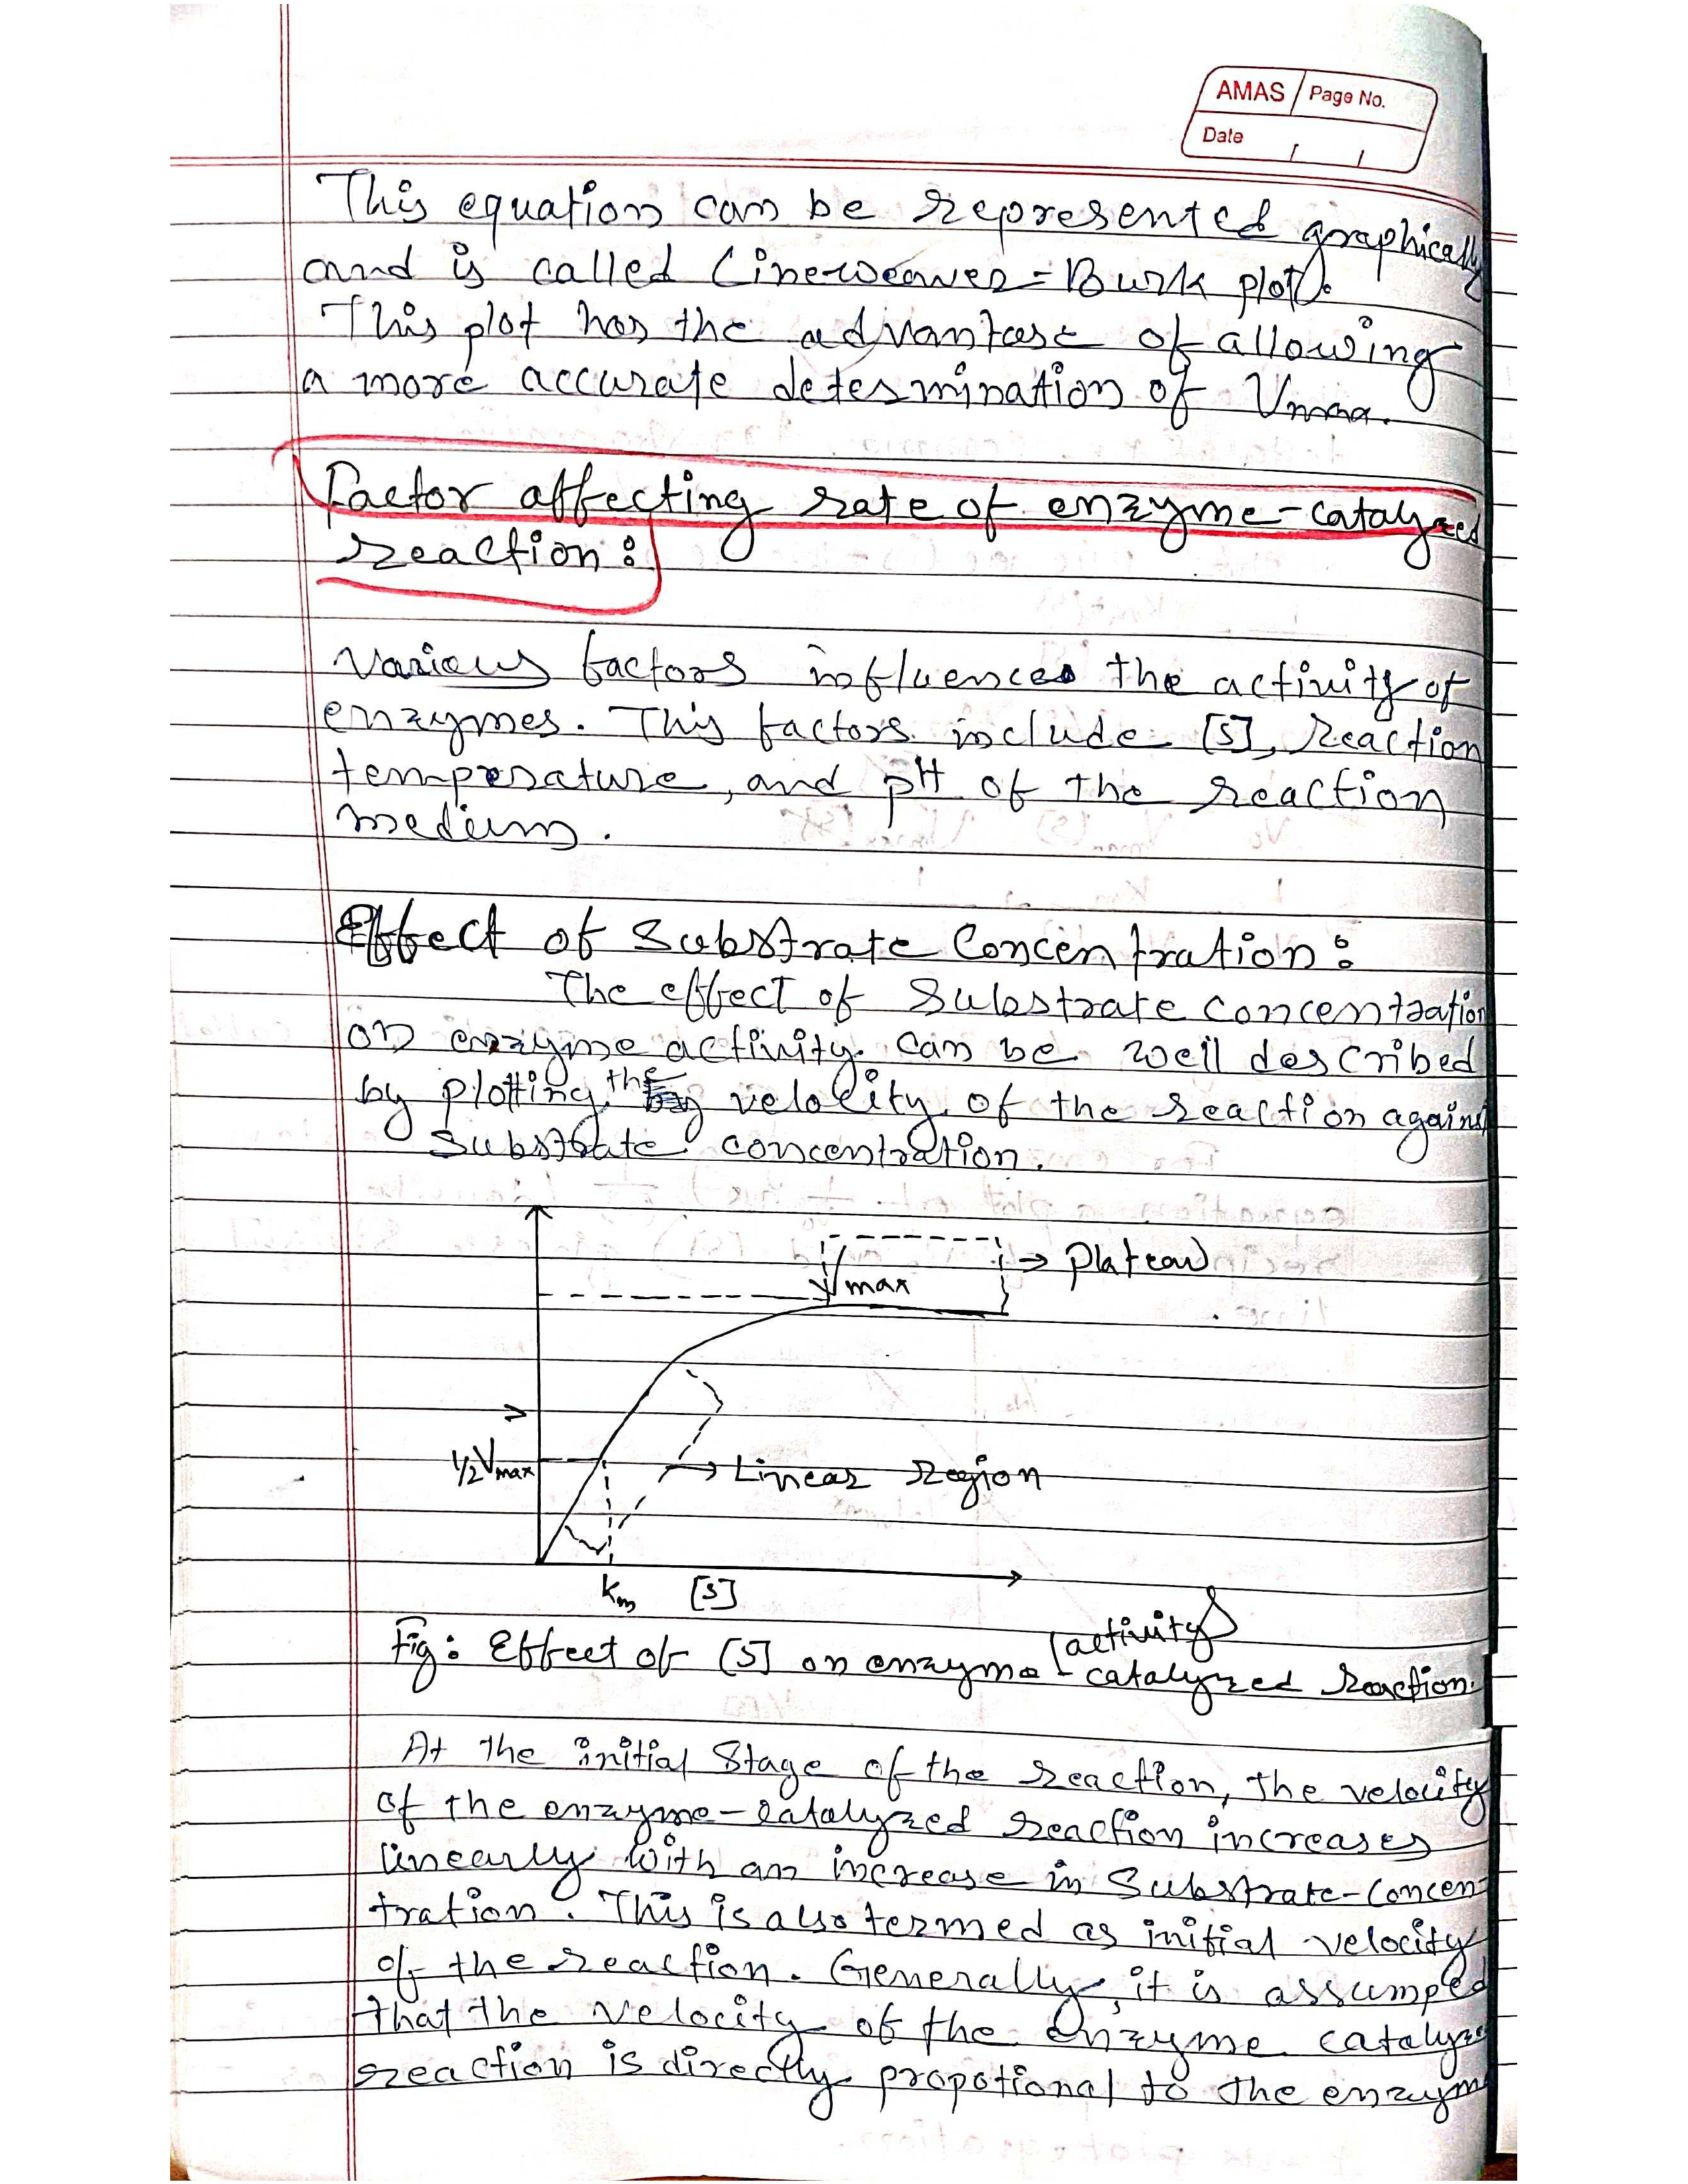 AMAS Page No.
Date / /
This equation can be represented graphically
and is called Lineweaver-Burk plot.
This plot has the advantage of allowing
a more accurate determination of Vmax.
Factor affecting rate of enzyme-catalyzed
reaction:
Various factors influences the activity of
enzymes. This factors include [S], reaction
temperature, and pH of the reaction
medium.
Effect of Substrate Concentration:
The effect of substrate concentration
on enzyme activity can be well described
by plotting the velocity of the reaction against
substrate concentration.
→ Plateau
Vmax
1/2 Vmax
→ Linear region
Km [S]
Fig: Effect of [S] on enzyme activity
-catalyzed reaction.
At the initial stage of the reaction, the velocity
of the enzyme-catalyzed reaction increases
linearly with an increase in substrate-concen-
tration. This is also termed as initial velocity
of the reaction. Generally, it is assumped
that the velocity of the enzyme catalyze
reaction is directly propotional to the enzym